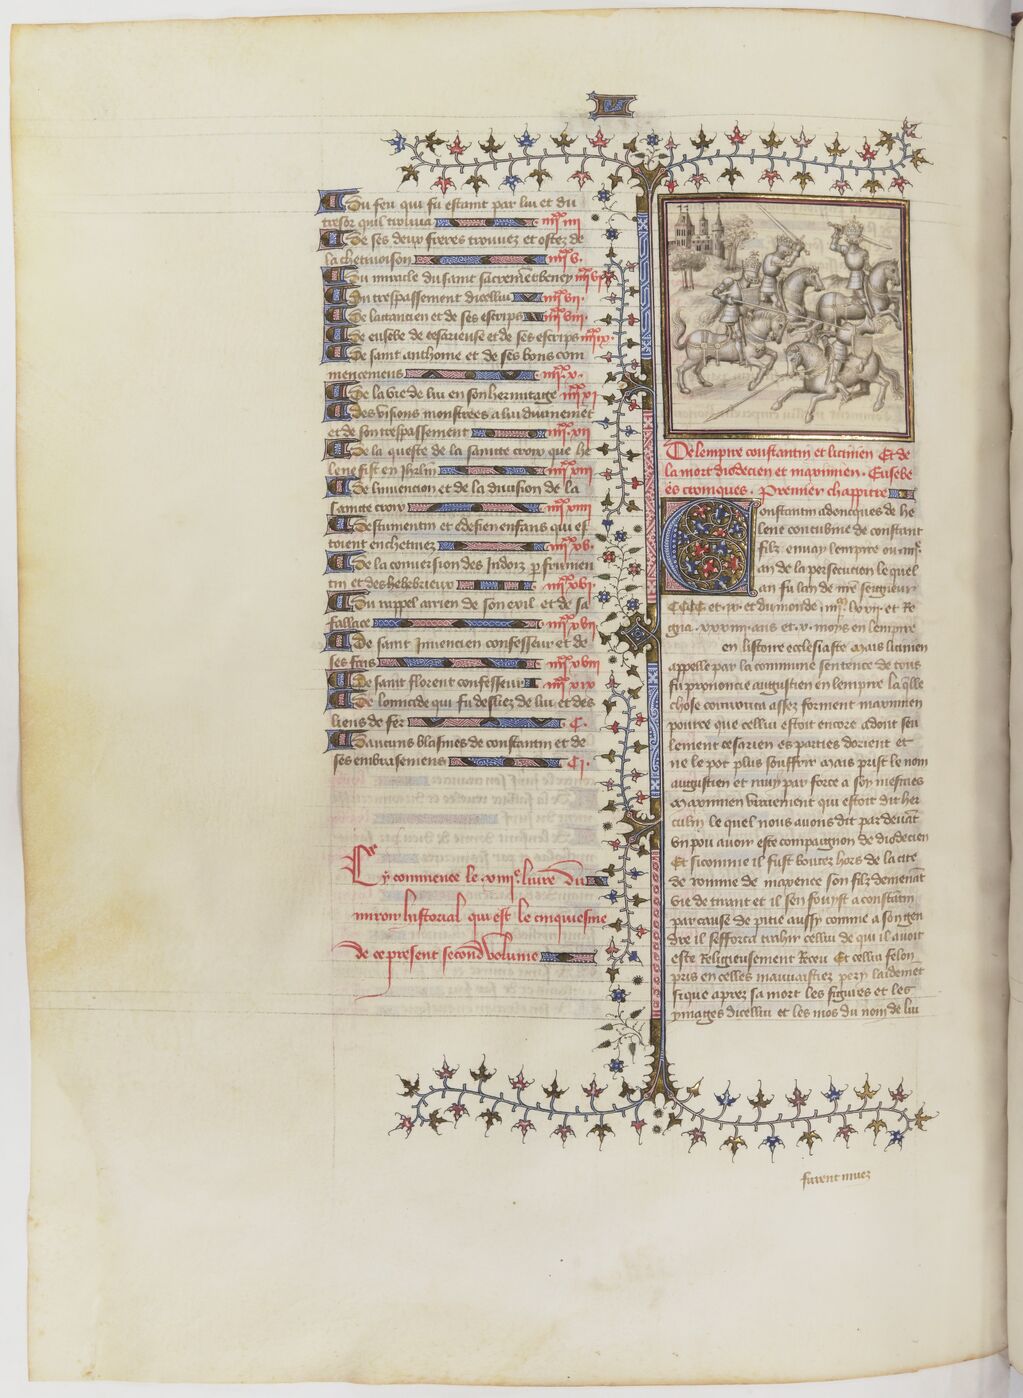 Du feu qui fu estaint par lui et du
tresor quil trouua iiiixx iiii
De ses deux freres trouuez et ostez de
la chetiuoison iiiixx v.
Du miracle du saint sacrement
Du trespassement dicellui iiiixx vii.
De lactancien et de ses escrips iiiixx viii.
De eusebe de cesarieuse et de ses escrips iiiixx ix.
De saint anthoine et de ses bons com
mencemens iiiixx .x.
De la vie de lui en son hermitage iiiixx xi
des visions monstrees a lui diuinemet
et de son trespassement iiiixx xii
De la queste de la saincte croix que he
lene fist en Jhrlm iiiixx xiii
De linuencion et de la diuision de la
saincte croix iiiixx xiiii
De frumentin et edesien enfans qui es
toient enchetiuez iiiixx xv.
De la conuersion des Indoiz p frumen
tin et des hebebrieux iiiixx xvi.
Du rappel arrien de son exil et de sa
fallace iiiixx xvii
De saint Inuencien confesseur et de
ses fais iiiixx xviii
De saint florent confesseur iiiixx xix
De lomicide qui fu desliez de lui et des
liens de fer C.
Daucuns blasmes de constantin et de
ses embrasemens Ci.
Cy commence le xiiiie. liure du
miroir historial qui est le cinquiesme
de ce present second volume
De lempire constantin et licinien Et de
la mort dioclecien et maximien. Eusebe
es croniques. Premier chappitre
Constantin adoncques de he
lene concubine de constant
filz enuay lempire ou
an de la persecution le quel
an fu lan de nre seigneur
CCCC et .ix. et du monde iiiim. lxxii. et Re
gna .xxxiiii. ans et .v. moys en lempire
en listoire ecclesiaste Mais licinien
appelle par la commune sentence de tous
fu prononcie augustien en lempire la qlle
chose courrouca assez forment maximien
pource que cellui estoit encore adont seu
lement cesarien es parties dorient et
ne le pot plus souffrir Mais prist le nom
augustien et rauy par force a soy mesmes
Maximien vraiement qui estoit dit her
culin le quel nous auons dit par deuant
vn pou auoir este compaignon de dioclecien
Et si comme il fust boutez hors de la cite
de romme de maxence son filz demenant
vie de tirant et il sen fouyst a constantin
par cause de pitie aussy comme a son gen
dre il sefforca trahir cellui de qui il auoit
este Religieusement Receu Et cellui felon
pris en celles mauuaistiez pery laidemet
si que apres sa mort les figures et les
ymages dicellui et les mos du nom de lui
furent muez